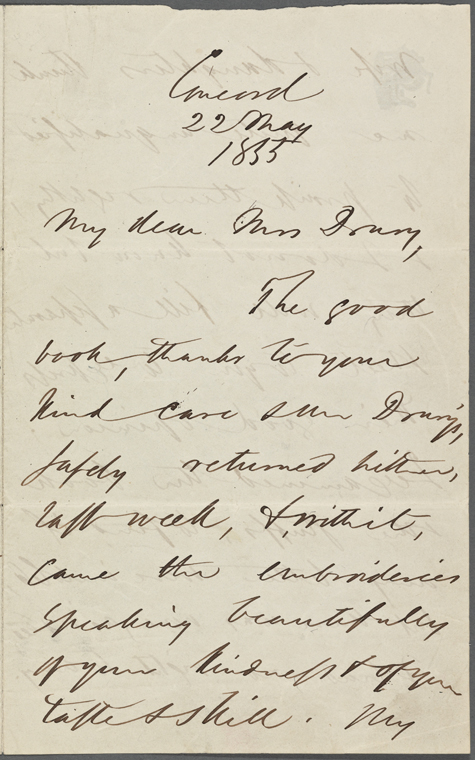 Concord
22 May
1855
My dear Mrs Drury,
The good
book, thanks to your
kind care & Mr Drury's,
safely returned hither,
last week, &, with it,
came the embroideries
speaking beautifully
of your kindness & of your
taste & skill. My